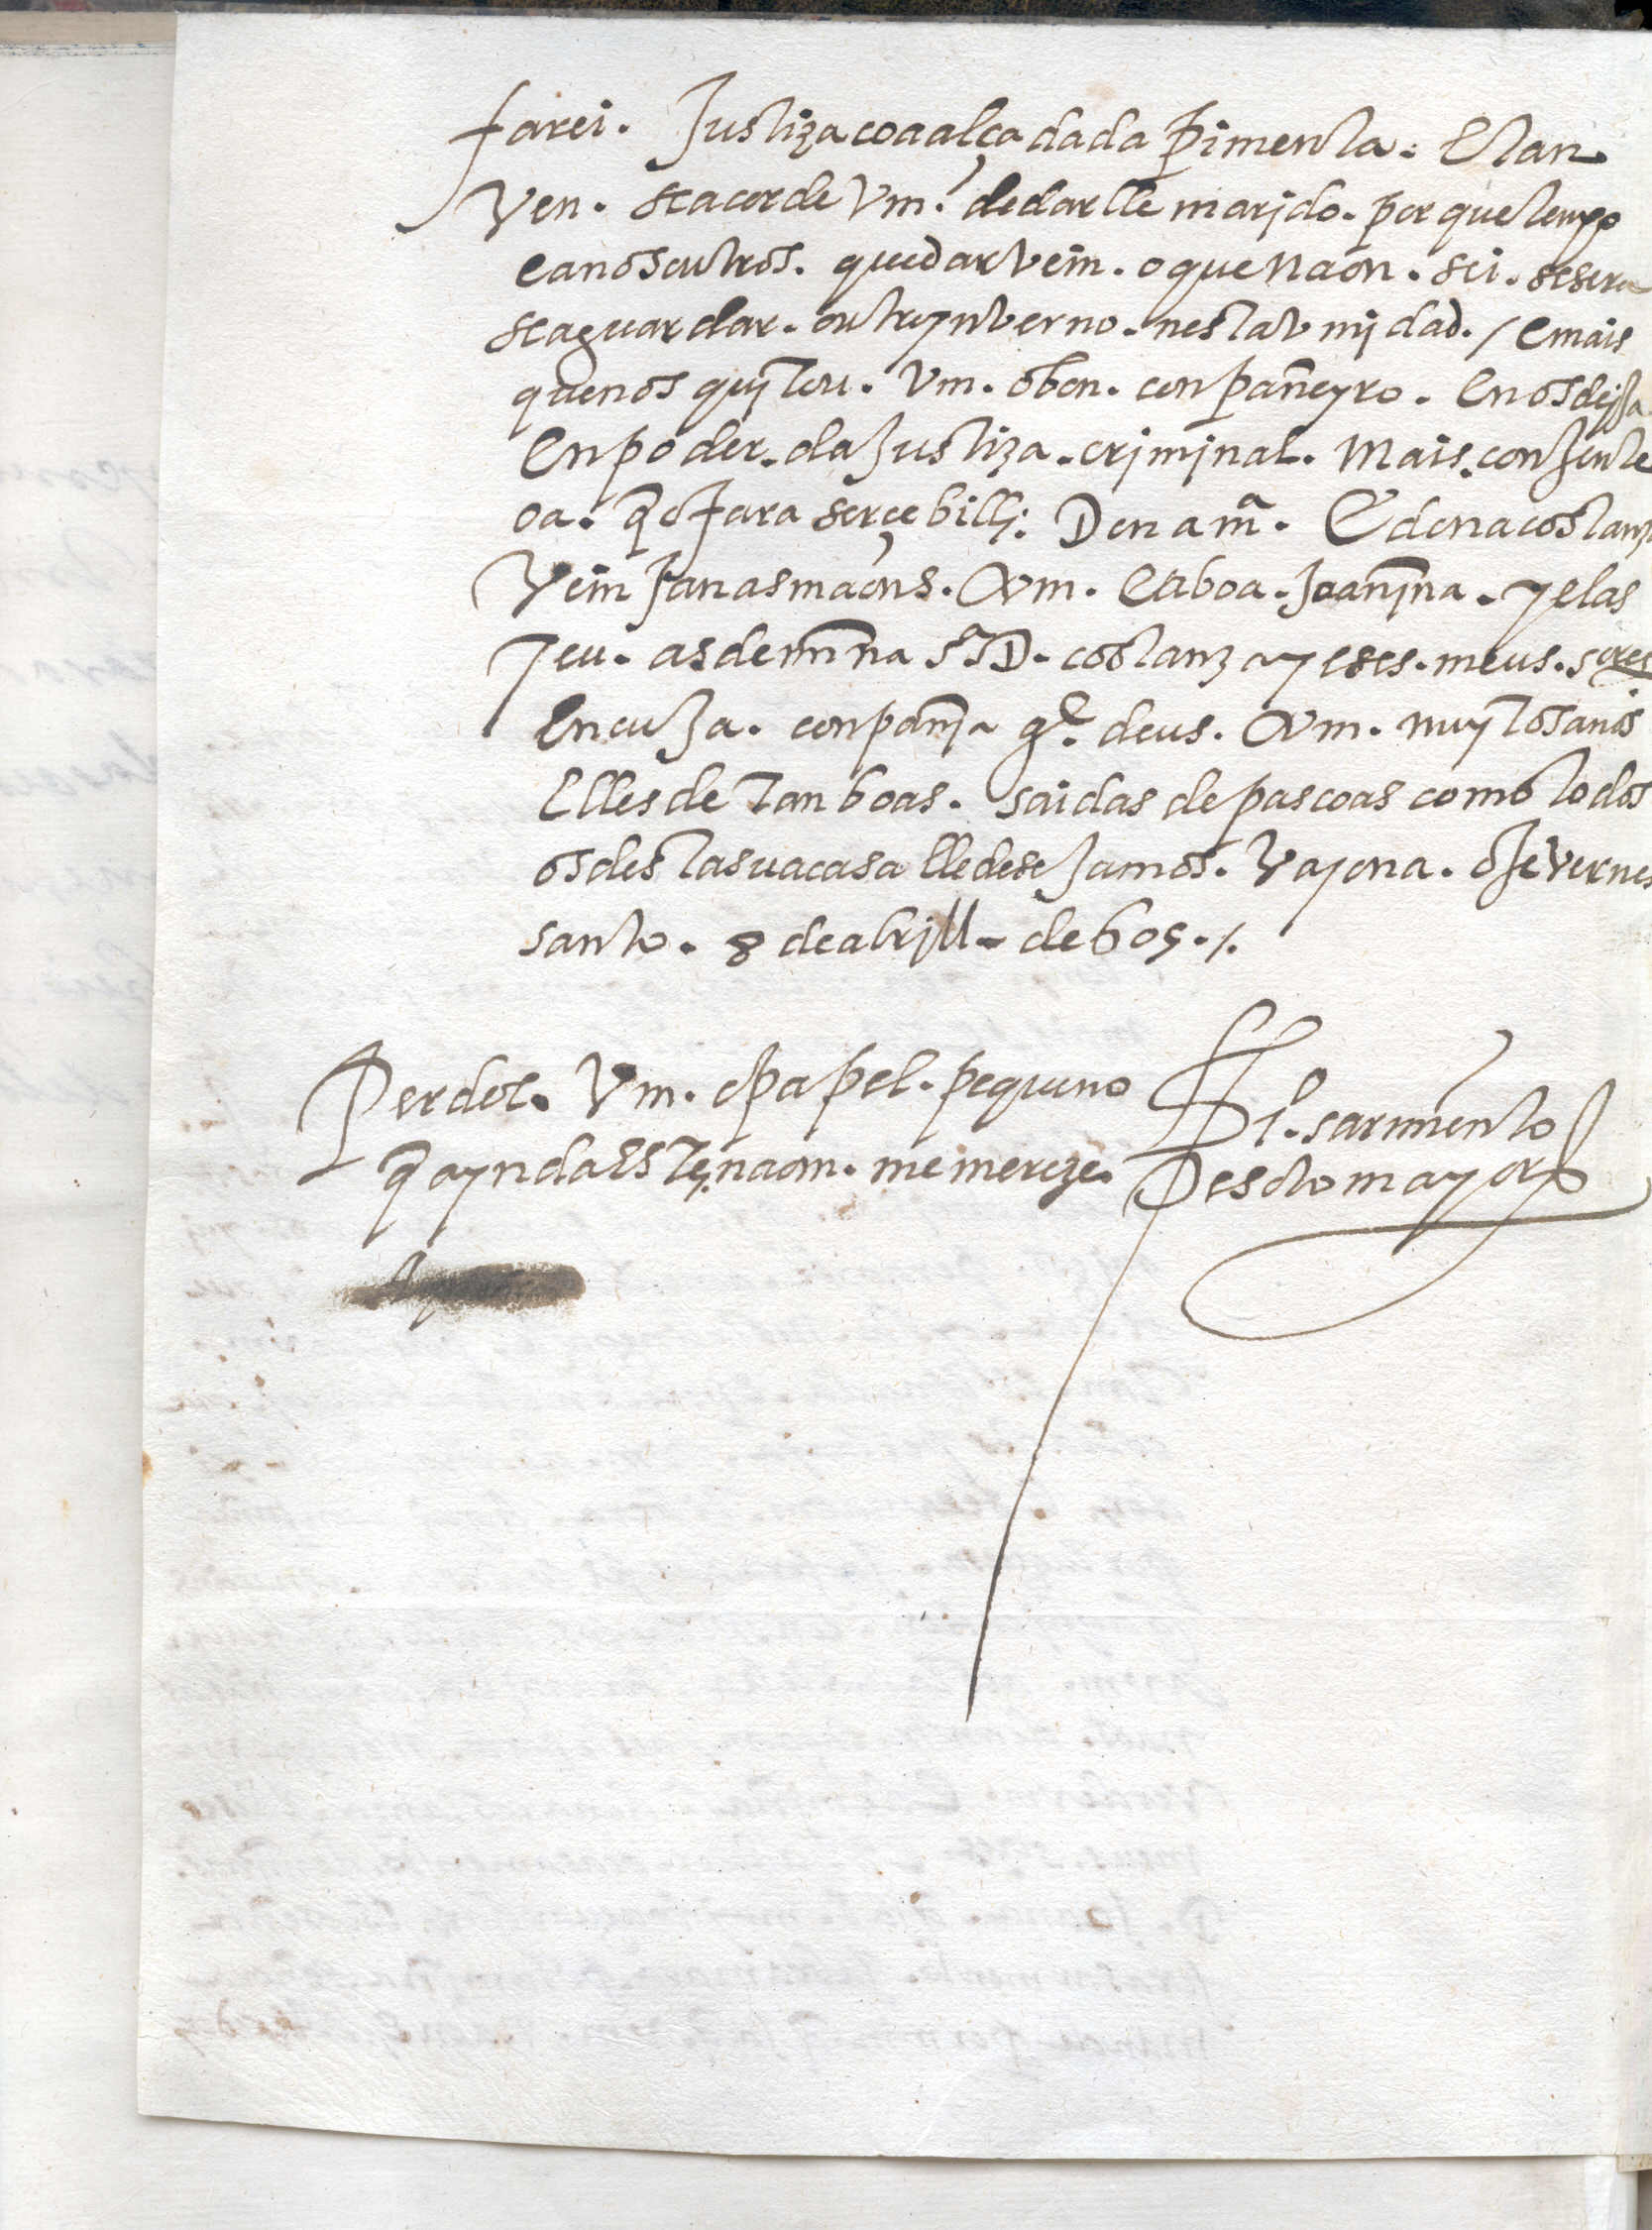 farei. Justiza coa alçada da pimenta. E tan
ven. se acorde Vm. de darlle marido. por que tempo
e anos outros. quedar vein. o que naon. sei. se sera
se aguardar. outr ynverno. nesta v mjdad. / e mais
que nos quitou. Vm. o bon. conpañeyro. e nos deissa
en poder. da Justiza. criminal. Mais. consente
oa. q̃ o fara serçebilla. Dona mª. E dona costanza
vein Jan as maons. a Vm. e a boa. Joanina. y elas
y eu. as de miña sª D. costanza y eses. meus. sores
en cuJa. conpanja gᵉ. deus. a Vm. muytos anos
e lles de tan boas. saidas de pascoas como todos
os desta sua casa lle deseJamos. Vayona. oJe vernes
santo. 8 de abrill - de 605 ./.
Perdoe. Vm. o papel. pequeno
q̃ aynda este naon. me mereze.
Dº. sarmiento
De sotomayor